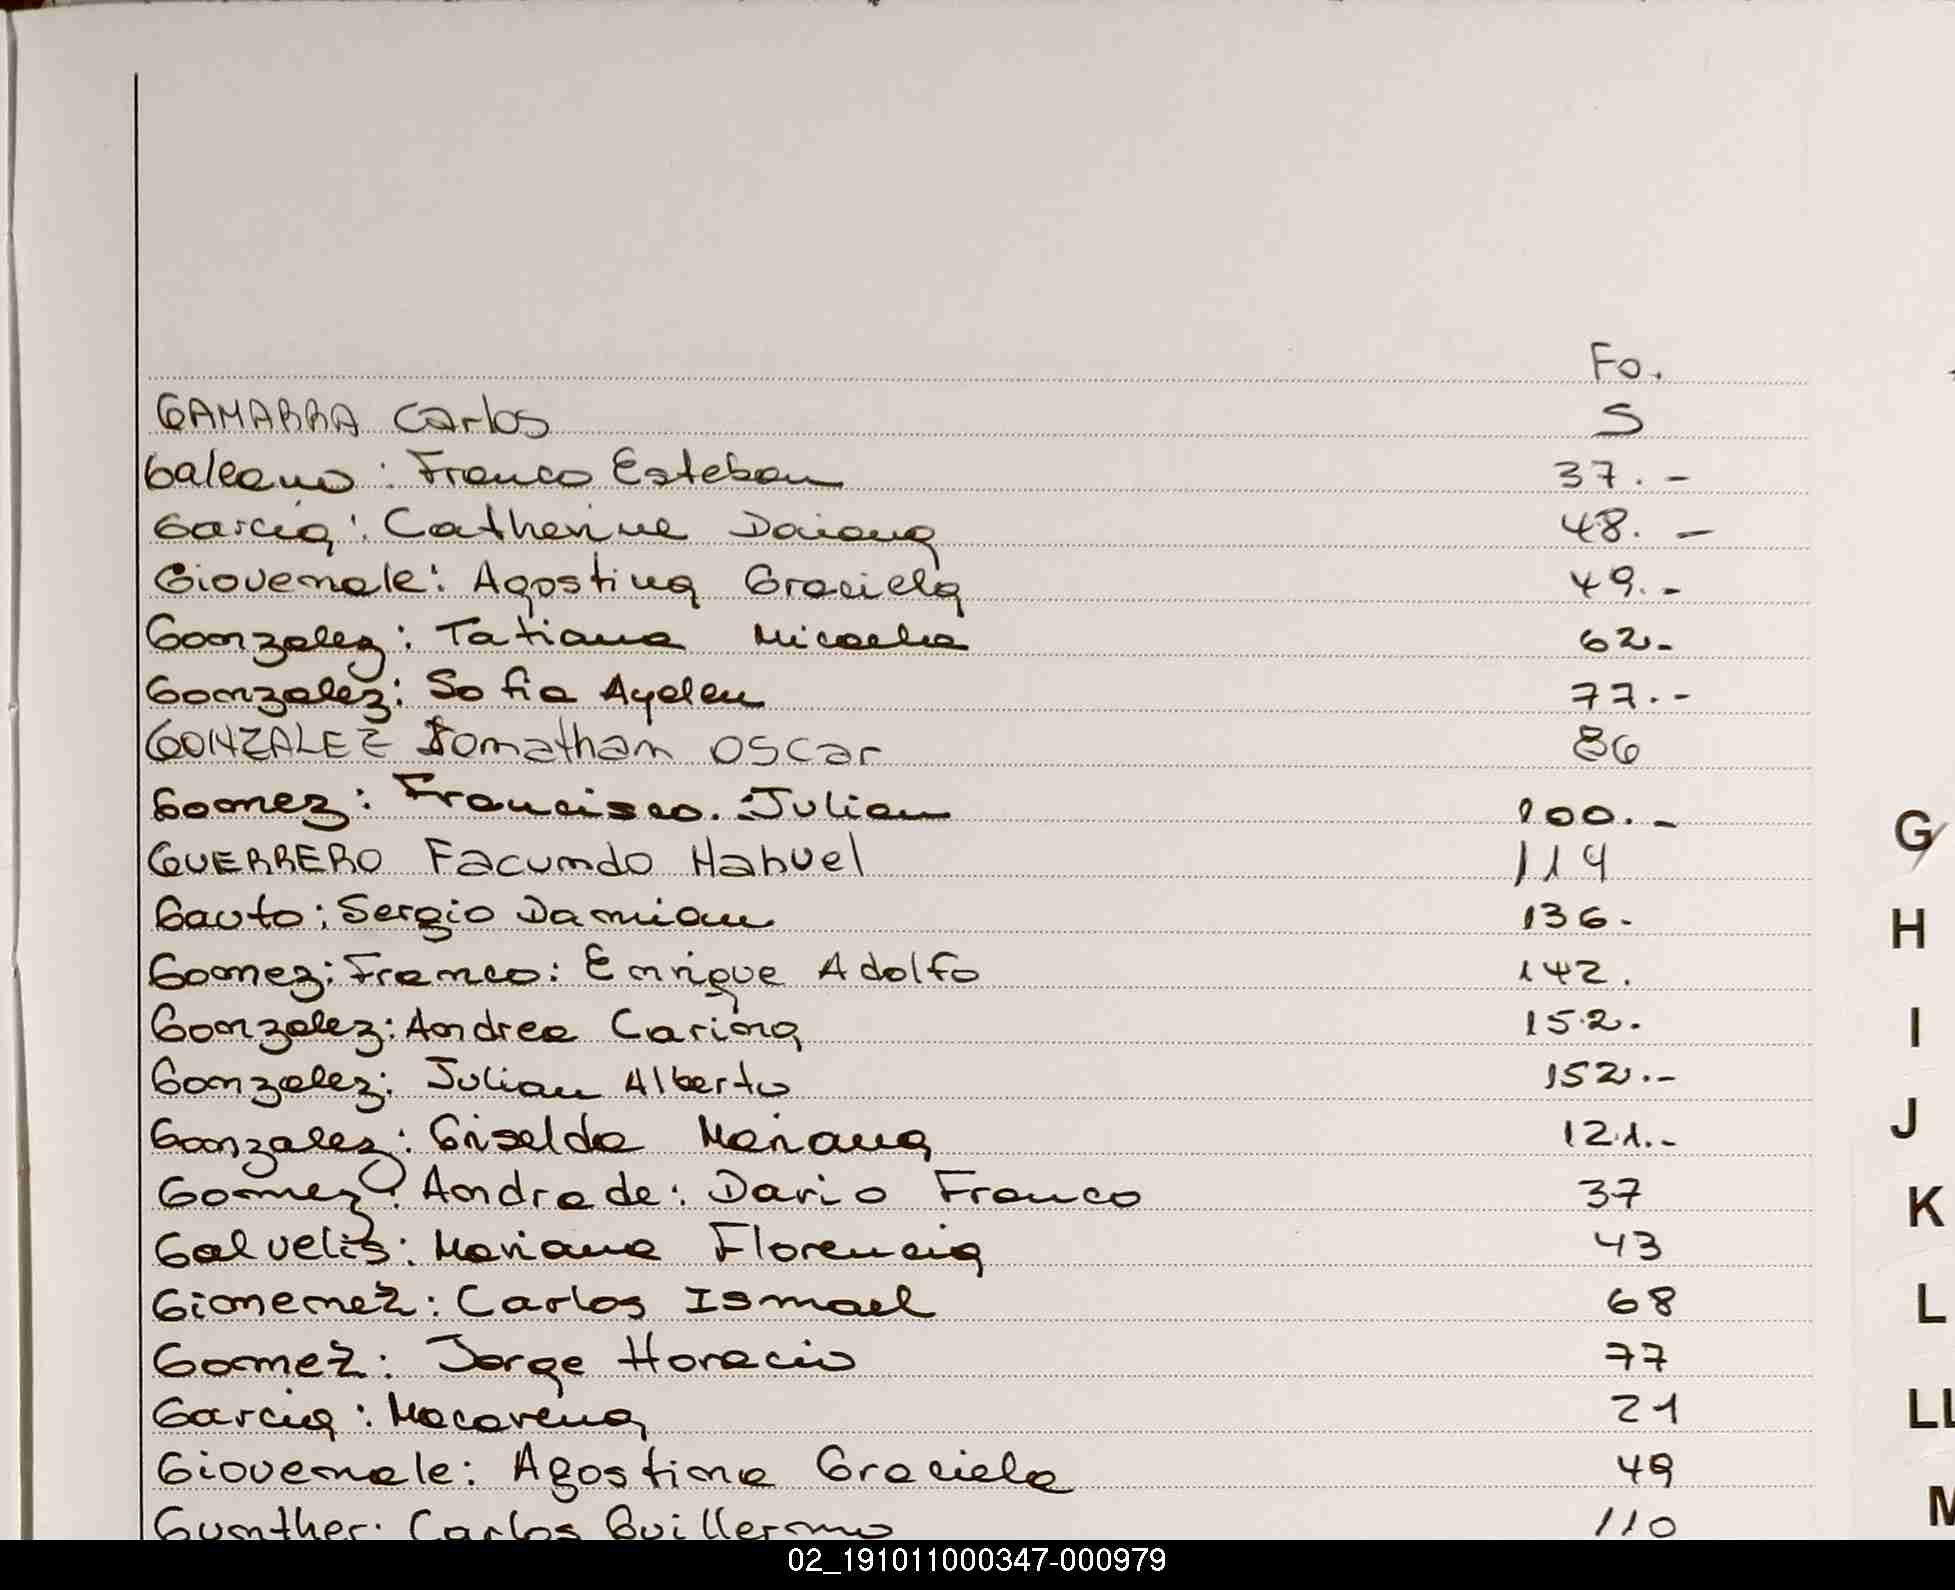 Fo.
GAMARRA Carlos 5
Galeano: Franco Esteban 37.-
Garcia: Catherine Daiana 48.-
Giovenale: Agostina Graciela 49.-
Gonzalez: Tatiana Micaela 62-
Gonzalez: Sofia Ayelen 77.-
GONZALEZ Jonathan Oscar 86
Gomez: Francisco. Julian 100.-
GUERRERO Facundo Nahuel 114
Gauto: Sergio Damian 136.
Gomez: Franco: Enrique Adolfo 142.
Gonzalez: Andrea Carina 152.
Gonzalez: Julian Alberto 152.-
Gonzalez: Griselda Mariana 121.-
Gomez: Andrade: Dario Franco 37
Galveliz: Mariana Florencia 43
Gimenez: Carlos Ismael 68
Gomez: Jorge Horacio 77
Garcia: Macarena 21
Giovenale: Agostina Graciela 49
Gunther: Carlos Guillermo 110
G
H
I
J
K
L
LL
M
02_191011000347-000979